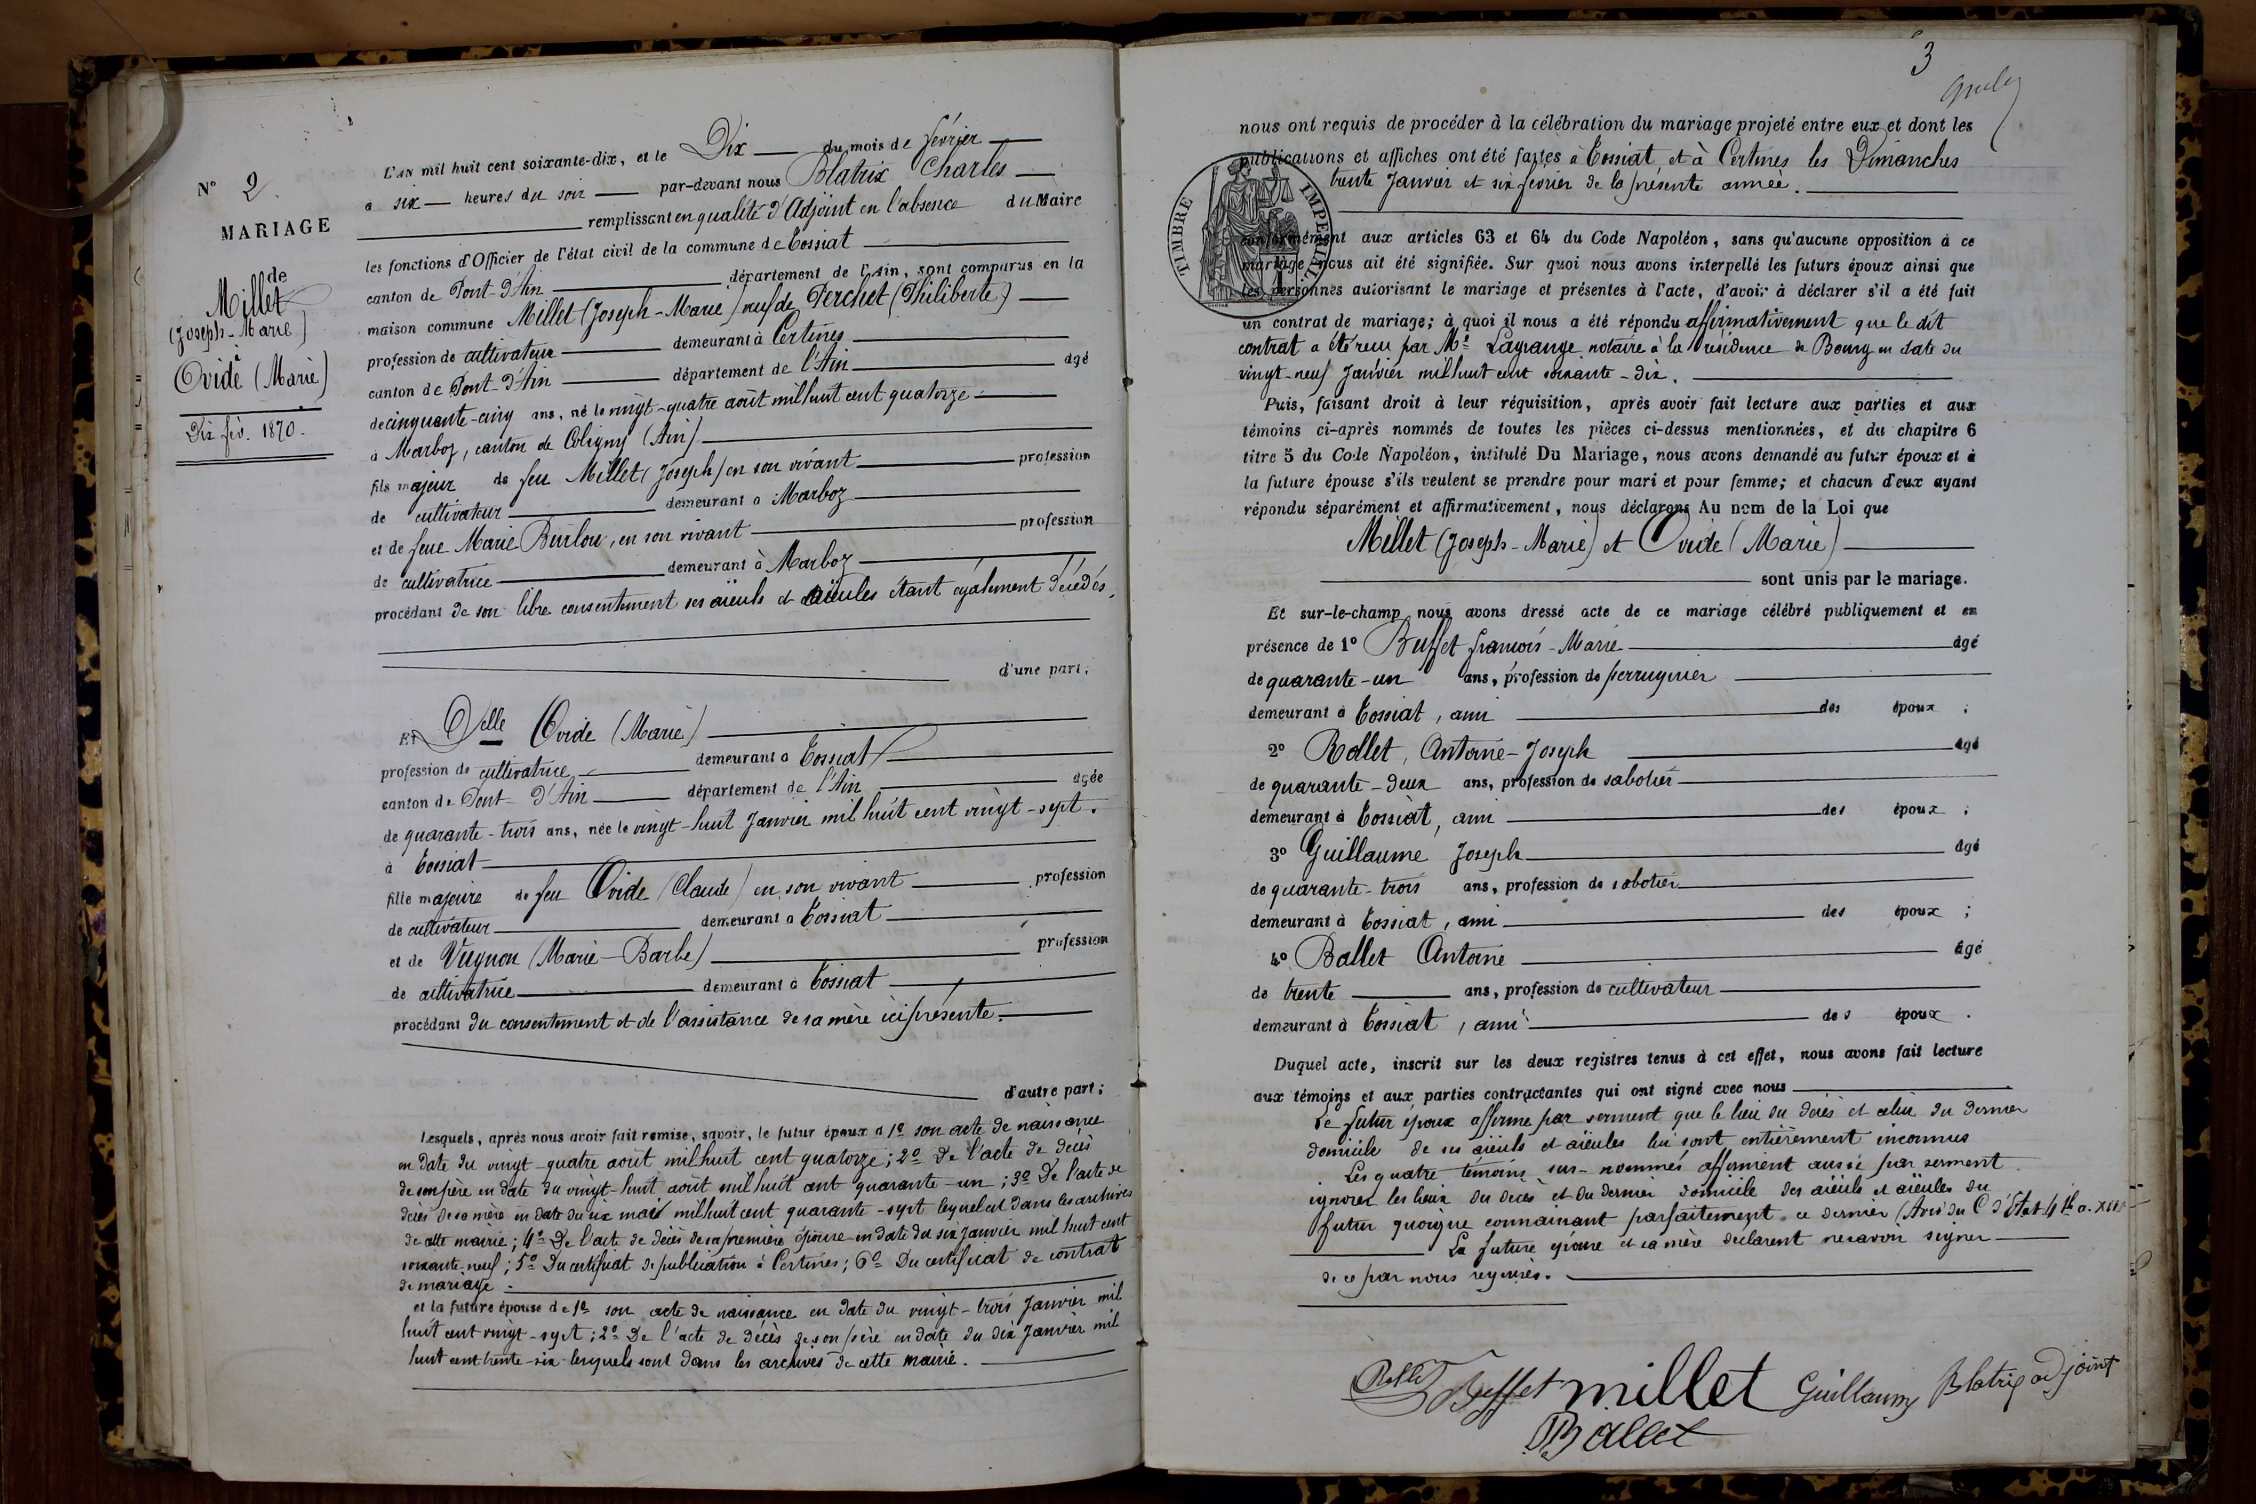 N° 2
MARIAGE
de
Millet
(Joseph-Marie)
à
Ovide (Marie)
Dix fév. 1870.
L'AN mil huit cent soixante-dix, et le Dix du mois de février
à six heures du soir par-devant nous Blatrix Charles
remplissant en qualité d'Adjoint en l'absence du Maire
les fonctions d'Officier de l'état civil de la commune de Tossiat
canton de Pont-d'Ain département de l'Ain, sont comparus en la
maison commune Millet (Joseph-Marie) veuf de Perchet (Philiberte)
profession de cultivateur demeurant à Certines
canton de Pont-d'Ain département de l'Ain âgé
de cinquante-cinq ans, né le vingt-quatre août mil huit cent quatorze
à Marboz, canton de Coligny (Ain)
fils majeur de feu Millet (Joseph) en son vivant profession
de cultivateur demeurant à Marboz
et de feue Marie Burlou, en son vivant profession
de cultivatrice demeurant à Marboz
procédant de son libre consentement ses aïeuls et aïeules étant également décédés,
d'une part;
Et Delle Ovide (Marie)
profession de cultivatrice demeurant à Tossiat
canton de Pont-d'Ain département de l'Ain âgée
de quarante-trois ans, née le vingt-huit Janvier mil huit cent vingt-sept.
à Tossiat
fille majeure de feu Ovide (Claude) en son vivant profession
de cultivateur demeurant à Tossiat
et de Vugnon (Marie-Barbe) profession
de cultivatrice demeurant à Tossiat
procédant du consentement et de l'assistance de sa mère ici présente.
d'autre part;
Lesquels, après nous avoir fait remise, savoir, le futur époux d 1° son acte de naissance
en date du vingt-quatre août mil huit cent quatorze; 2° De l'acte de décès
de son père en date du vingt-huit août mil huit cent quarante-un; 3° De l'acte de
décès de sa mère en date du six mars mil huit cent quarante-sept lequel est dans les archives
de cette mairie; 4° De l'acte de décès de sa première épouse en date du six Janvier mil huit cent
soixante-neuf; 5° Du certificat de publication à Certines; 6° Du certificat de contrat
de mariage.
et la future épouse de 1° son acte de naissance en date du vingt-trois Janvier mil
huit cent vingt-sept; 2° De l'acte de décès de son père en date du dix Janvier mil
huit cent trente-six lesquels sont dans les archives de cette mairie.
3
nous ont requis de procéder à la célébration du mariage projeté entre eux et dont les
publications et affiches ont été faites à Tossiat et à Certines les Dimanches
trente Janvier et six février de la présente année.
TIMBRE IMPÉRIAL
conformément aux articles 63 et 64 du Code Napoléon, sans qu'aucune opposition à ce
mariage nous ait été signifiée. Sur quoi nous avons interpellé les futurs époux ainsi que
les personnes autorisant le mariage et présentes à l'acte, d'avoir à déclarer s'il a été fait
un contrat de mariage; à quoi il nous a été répondu affirmativement que le dit
contrat a été reçu par Me Lagrange notaire à la résidence de Bourg en date du
vingt-neuf Janvier mil huit cent soixante-dix.
Puis, faisant droit à leur réquisition, après avoir fait lecture aux parties et aux
témoins ci-après nommés de toutes les pièces ci-dessus mentionnées, et du chapitre 6
titre 5 du Code Napoléon, intitulé Du Mariage, nous avons demandé au futur époux et à
la future épouse s'ils veulent se prendre pour mari et pour femme; et chacun d'eux ayant
répondu séparément et affirmativement, nous déclarons Au nom de la Loi que
Millet (Joseph-Marie) et Ovide (Marie)
sont unis par le mariage.
Et sur-le-champ nous avons dressé acte de ce mariage célébré publiquement et en
présence de 1° Buffet françois-Marie âgé
de quarante-un ans, profession de perruquier
demeurant à Tossiat, ami des époux;
2° Rollet, Antoine-Joseph âgé
de quarante-deux ans, profession de sabotier
demeurant à Tossiat, ami des époux;
3° Guillaume Joseph âgé
de quarante-trois ans, profession de sabotier
demeurant à Tossiat, ami des époux;
4° Ballet Antoine âgé
de trente ans, profession de cultivateur
demeurant à Tossiat, ami des époux.
Duquel acte, inscrit sur les deux registres tenus à cet effet, nous avons fait lecture
aux témoins et aux parties contractantes qui ont signé avec nous
Le futur époux affirme par serment que le lieu du décès et celui du dernier
domicile de ses aïeuls et aïeules lui sont entièrement inconnus
Les quatre témoins sus-nommés affirment aussi par serment
ignorer les lieux du décès et du dernier domicile des aïeuls et aïeules du
futur quoique connaissant parfaitement ce dernier (Avis du C. d'Etat 4 th. a. XIII)
La future épouse et sa mère déclarent ne savoir signer
de ce par nous requises.
Rollet Buffet millet Guillaume Blatrix adjoint
Ballet